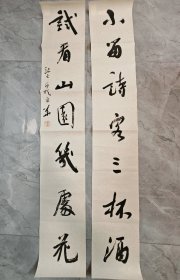 小留詩客三杯酒
試看山園幾處花